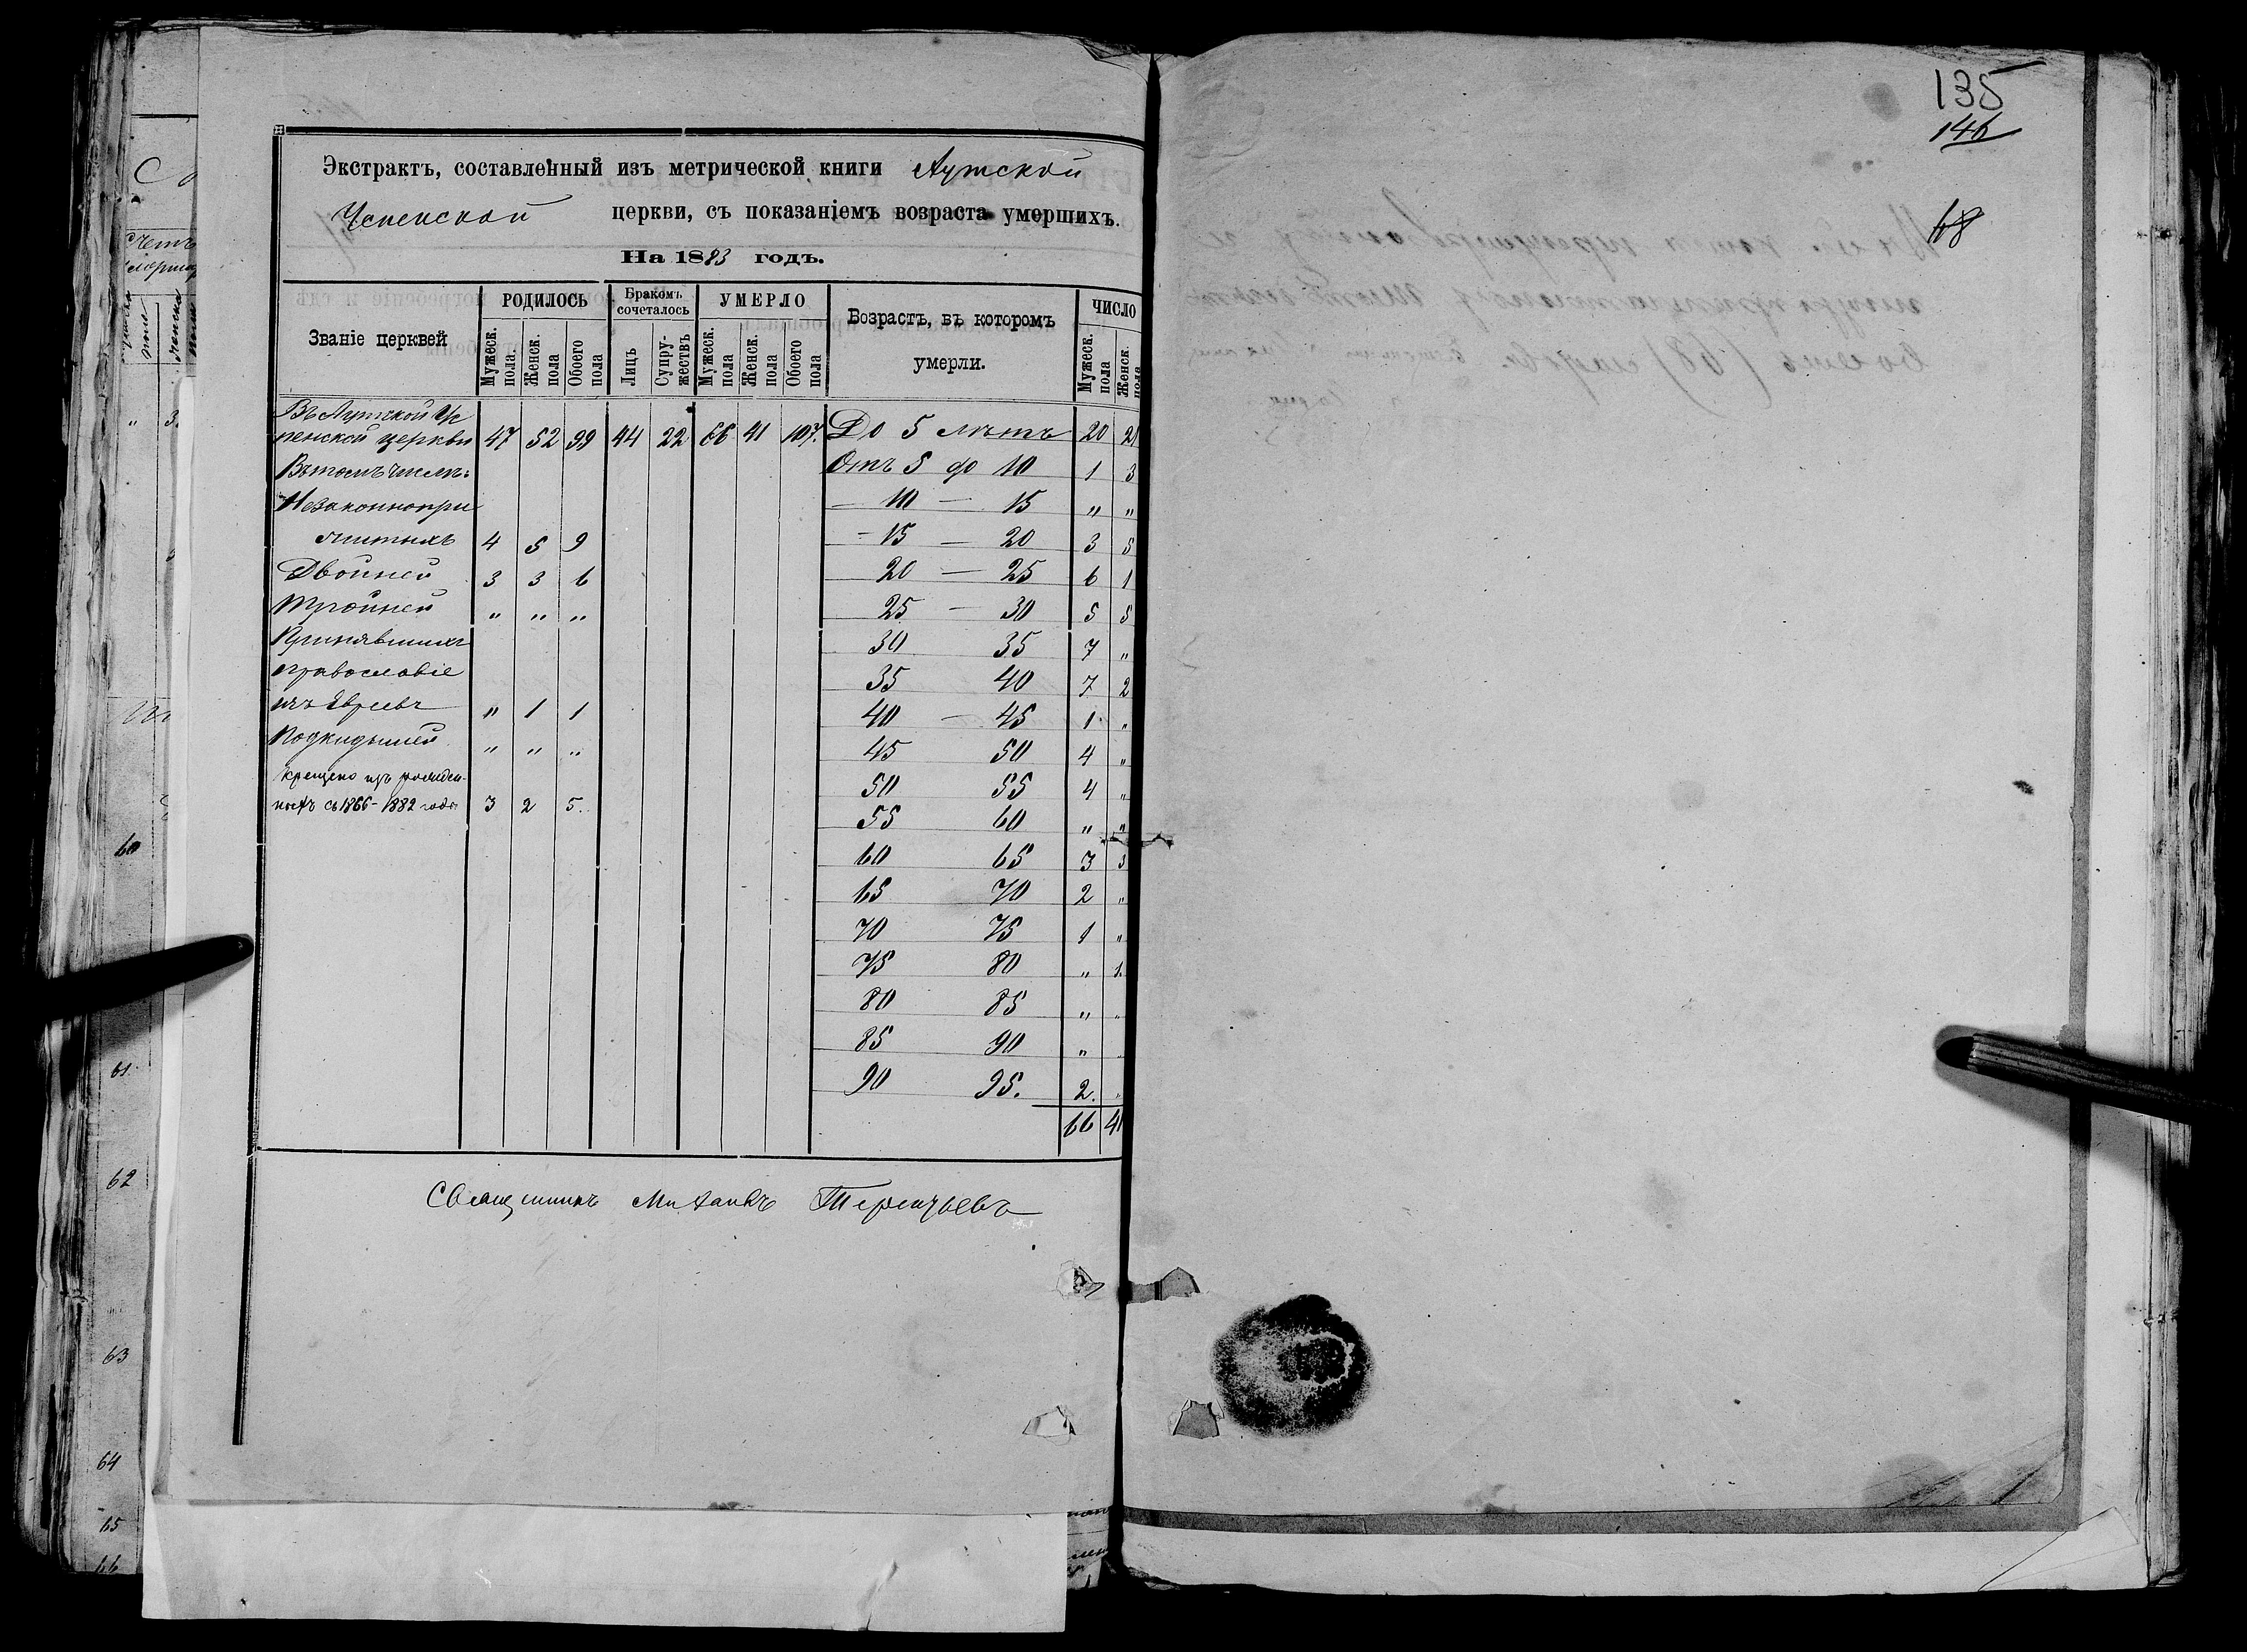 Экстрактъ, составленный изъ метрической книги Аутской
Успенской церкви, съ показаніемъ возраста умершихъ.
На 1883 годъ.
Званіе церквей | РОДИЛОСЬ | Бракомъ сочеталось | УМЕРЛО | Возрастъ, въ которомъ умерли. | ЧИСЛО
Мужеск. пола. | Женск. пола | Обоего пола | Лицъ | Супружествъ | Мужеск. пола | Женск. пола | Обоего пола | Мужеск. пола | Женск. пола
Въ Аутской Ус
пенской церкви 47 52 99 44 22 66 41 107. До 5 лѣтъ 20 21
Въ томъ числѣ: Отъ 5 до 10 1 3
Незаконнопри — 10 — 15 " "
житыхъ 4 5 9 - 15 — 20 3 5
Двойней 3 3 6 20 — 25 6 1
Тройней " " " 25 — 30 5 5
Принявшихъ 30 35 7 "
православіе 35 40 7 2
изъ Евреевъ " 1 1 40 — 45 1 "
Подкидышей " " " 45 50 4 "
крещено изъ рожден- 50 55 4 "
ныхъ съ 1866-1882 года 3 2 5. 55 60 " "
60 65 3 3
65 70 2 "
70 75 1 "
75 80 " 1
80 85 " "
85 90 " "
90 95. 2. "
66 41
Священникъ Михаилъ Терентьевъ
135
146
68
60
61
62
63
64
65
66